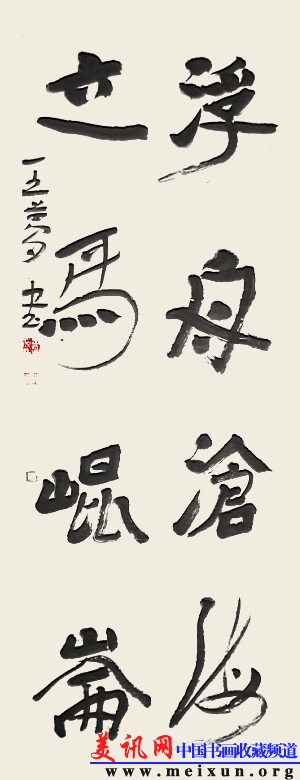 浮舟滄海
立馬崑崙
美讯网 中国书画收藏频道
www.meixun.org